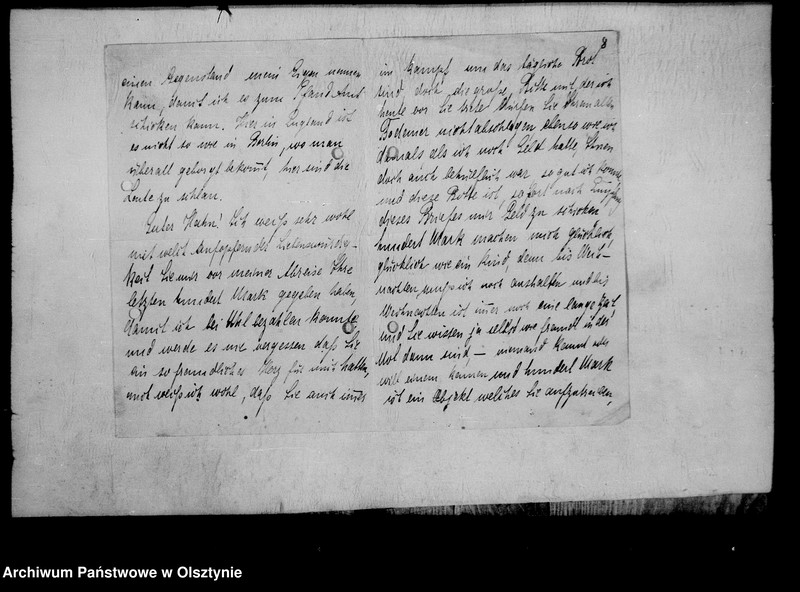 8
einen Gegenstand mein Eigen nennen
kann, damit ich es zum Pfand Amt
schicken kann. Hier in England ist
es nicht so wie in Berlin, wo man
überall geborgt bekomt, hier sind die
Leute zu schlau.
Guter Hahn! Ich weiß sehr wohl
mit welch aufopfernder Liebenswürdig-
keit Sie mir vor meiner Abreise Ihre
letzten hundert Mark gegeben haben,
damit ich bei Uhl bezahlen konnte
und werde es nie vergessen daß Sie
ein so freundliches Herz für mich hatten,
und weiß ich wohl, daß Sie auch imer
im Kampf um das tägliche Brot
sind, doch die große Bitte mit der ich
heute vor Sie trete dürfen Sie Ihrem alten
Bodemer nicht abschlagen ebenso wie ich
damals als ich noch Geld hatte, Ihnen
doch auch behülflich war so gut ich konnte,
und diese Bitte ist, sofort nach Empfang
dieses Briefes mir Geld zu schicken
hundert Mark machen mich glücklich
glücklich wie ein Kind, denn bis Weih-
nachten muß ich noch aushalten und bis
Weihnachten ist imer noch eine lange Zeit
und Sie wissen ja selbst wie fremdt in der
Not dann sind — niemand kennt oder
will einem kennen, und hundert Mark
ist ein Objekt welches Sie aufzutreiben,
Archiwum Państwowe w Olsztynie